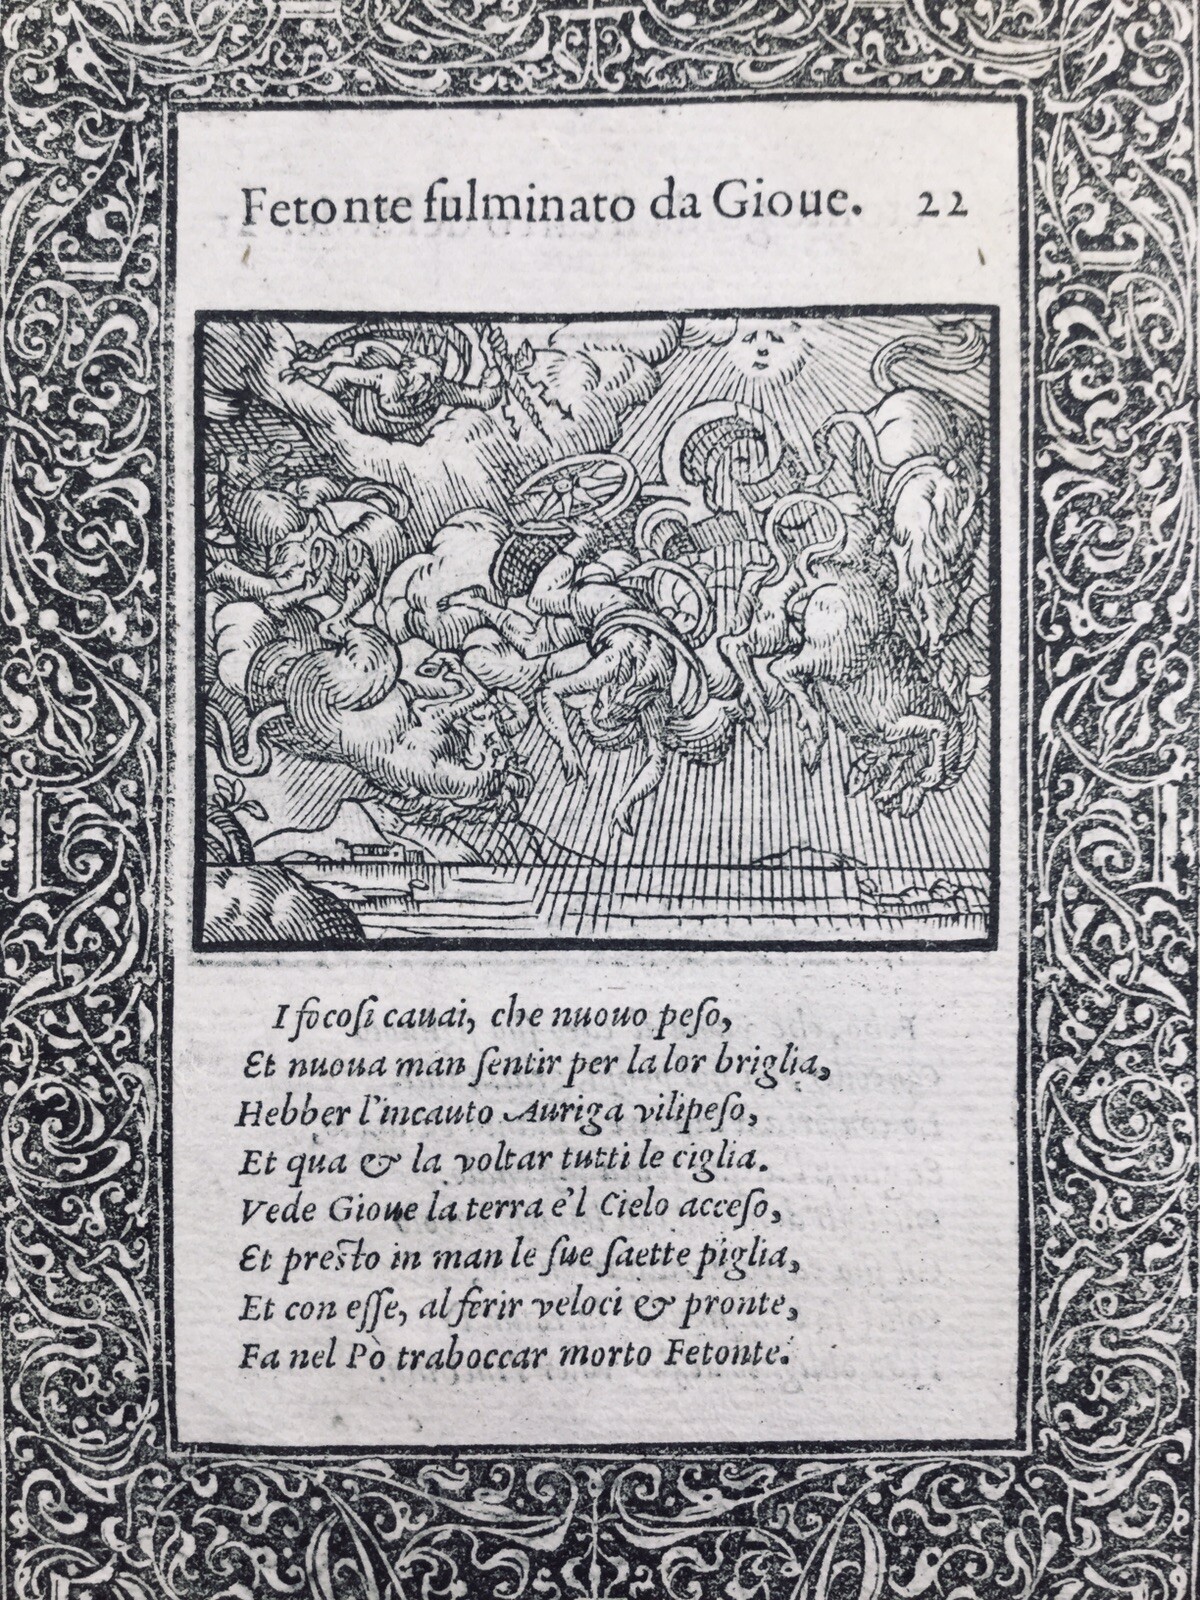 Fetonte fulminato da Gioue. 22
I focoſi cauai, che nuouo peſo,
Et nuoua man ſentir per la lor briglia,
Hebber l'incauto Auriga vilipeſo,
Et qua & la voltar tutti le ciglia.
Vede Gioue la terra e'l Cielo acceſo,
Et presto in man le ſue ſaette piglia,
Et con eſſe, al ferir veloci & pronte,
Fa nel Pò traboccar morto Fetonte.